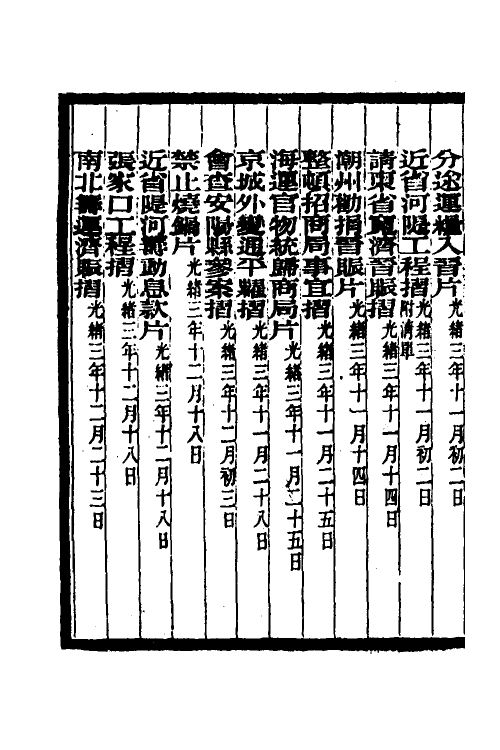 分途運糧入晉片光緒三年十一月初二日
近省河隄工程摺附清單光緒三年十一月初二日
請東省寬濟晉賬摺光緒三年十一月十四日
潮州勸捐晉賬片光緒三年十一月十四日
整頓招商局事宜摺光緒三年十一月二十五日
海運官物統歸商局片光緒三年十一月二十五日
京城外變通平糶摺光緒三年十一月二十八日
會查安陽縣參案摺光緒三年十二月初三日
禁止燒鍋片光緒三年十二月十八日
近省隄河籌動息款片光緒三年十二月十八日
張家口工程摺光緒三年十二月十八日
南北籌運濟賬摺光緒三年十二月二十三日